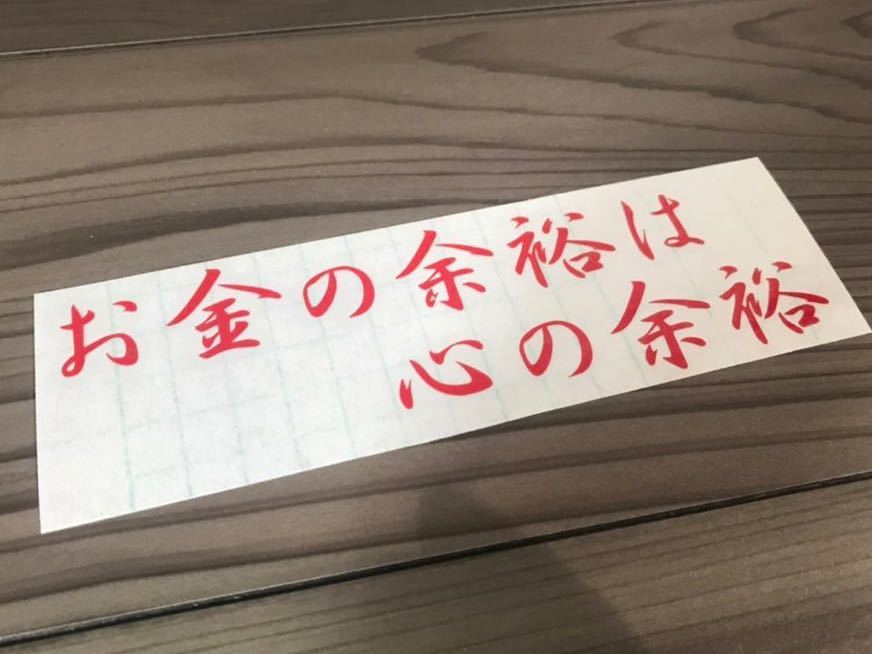 お金の余裕は
心の余裕